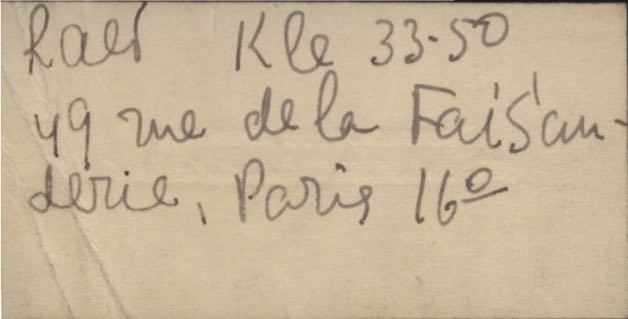 Kle 33-50
49 rue de la Faisan-
derie, Paris 16º